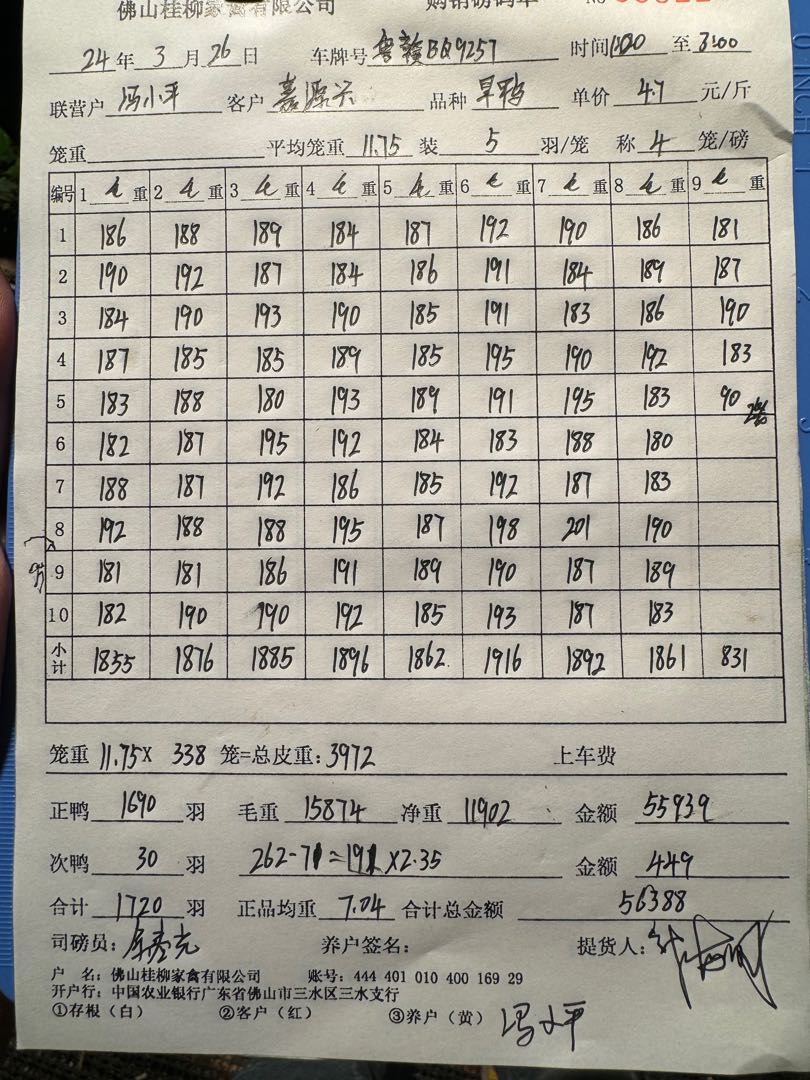 佛山桂柳家禽有限公司 购销磅码单 No
24年3月26日 车牌号 粤赣BQ9257 时间1:00至3:00
联营户 冯小平 客户 嘉源兴 品种 旱鸭 单价 4.7 元/斤
笼重 平均笼重 11.75 装 5 羽/笼 称 4 笼/磅
编号 1 毛 重 2 毛 重 3 毛 重 4 毛 重 5 毛 重 6 毛 重 7 毛 重 8 毛 重 9 毛 重
1 186 188 189 184 187 192 190 186 181
2 190 192 187 184 186 191 184 189 187
3 184 190 193 190 185 191 183 186 190
4 187 185 185 189 185 195 190 192 183
5 183 188 180 193 189 191 195 183 90
6 182 187 195 192 184 183 188 180
7 188 187 192 186 185 192 187 183
8 192 188 188 195 187 198 201 190
9 181 181 186 191 189 190 187 189
10 182 190 190 192 185 193 187 183
小计 1855 1876 1885 1896 1862 1916 1892 1861 831
笼重 11.75× 338 笼=总皮重:3972 上车费
正鸭 1690 羽 毛重 15874 净重 11902 金额 55939
次鸭 30 羽 262-71=191×2.35 金额 449
合计 1720 羽 正品均重 7.04 合计总金额 56388
司磅员: 养户签名: 提货人:
户 名:佛山桂柳家禽有限公司 账号:444 401 010 400 169 29
开户行:中国农业银行广东省佛山市三水区三水支行
①存根(白) ②客户(红) ③养户(黄) 冯小平